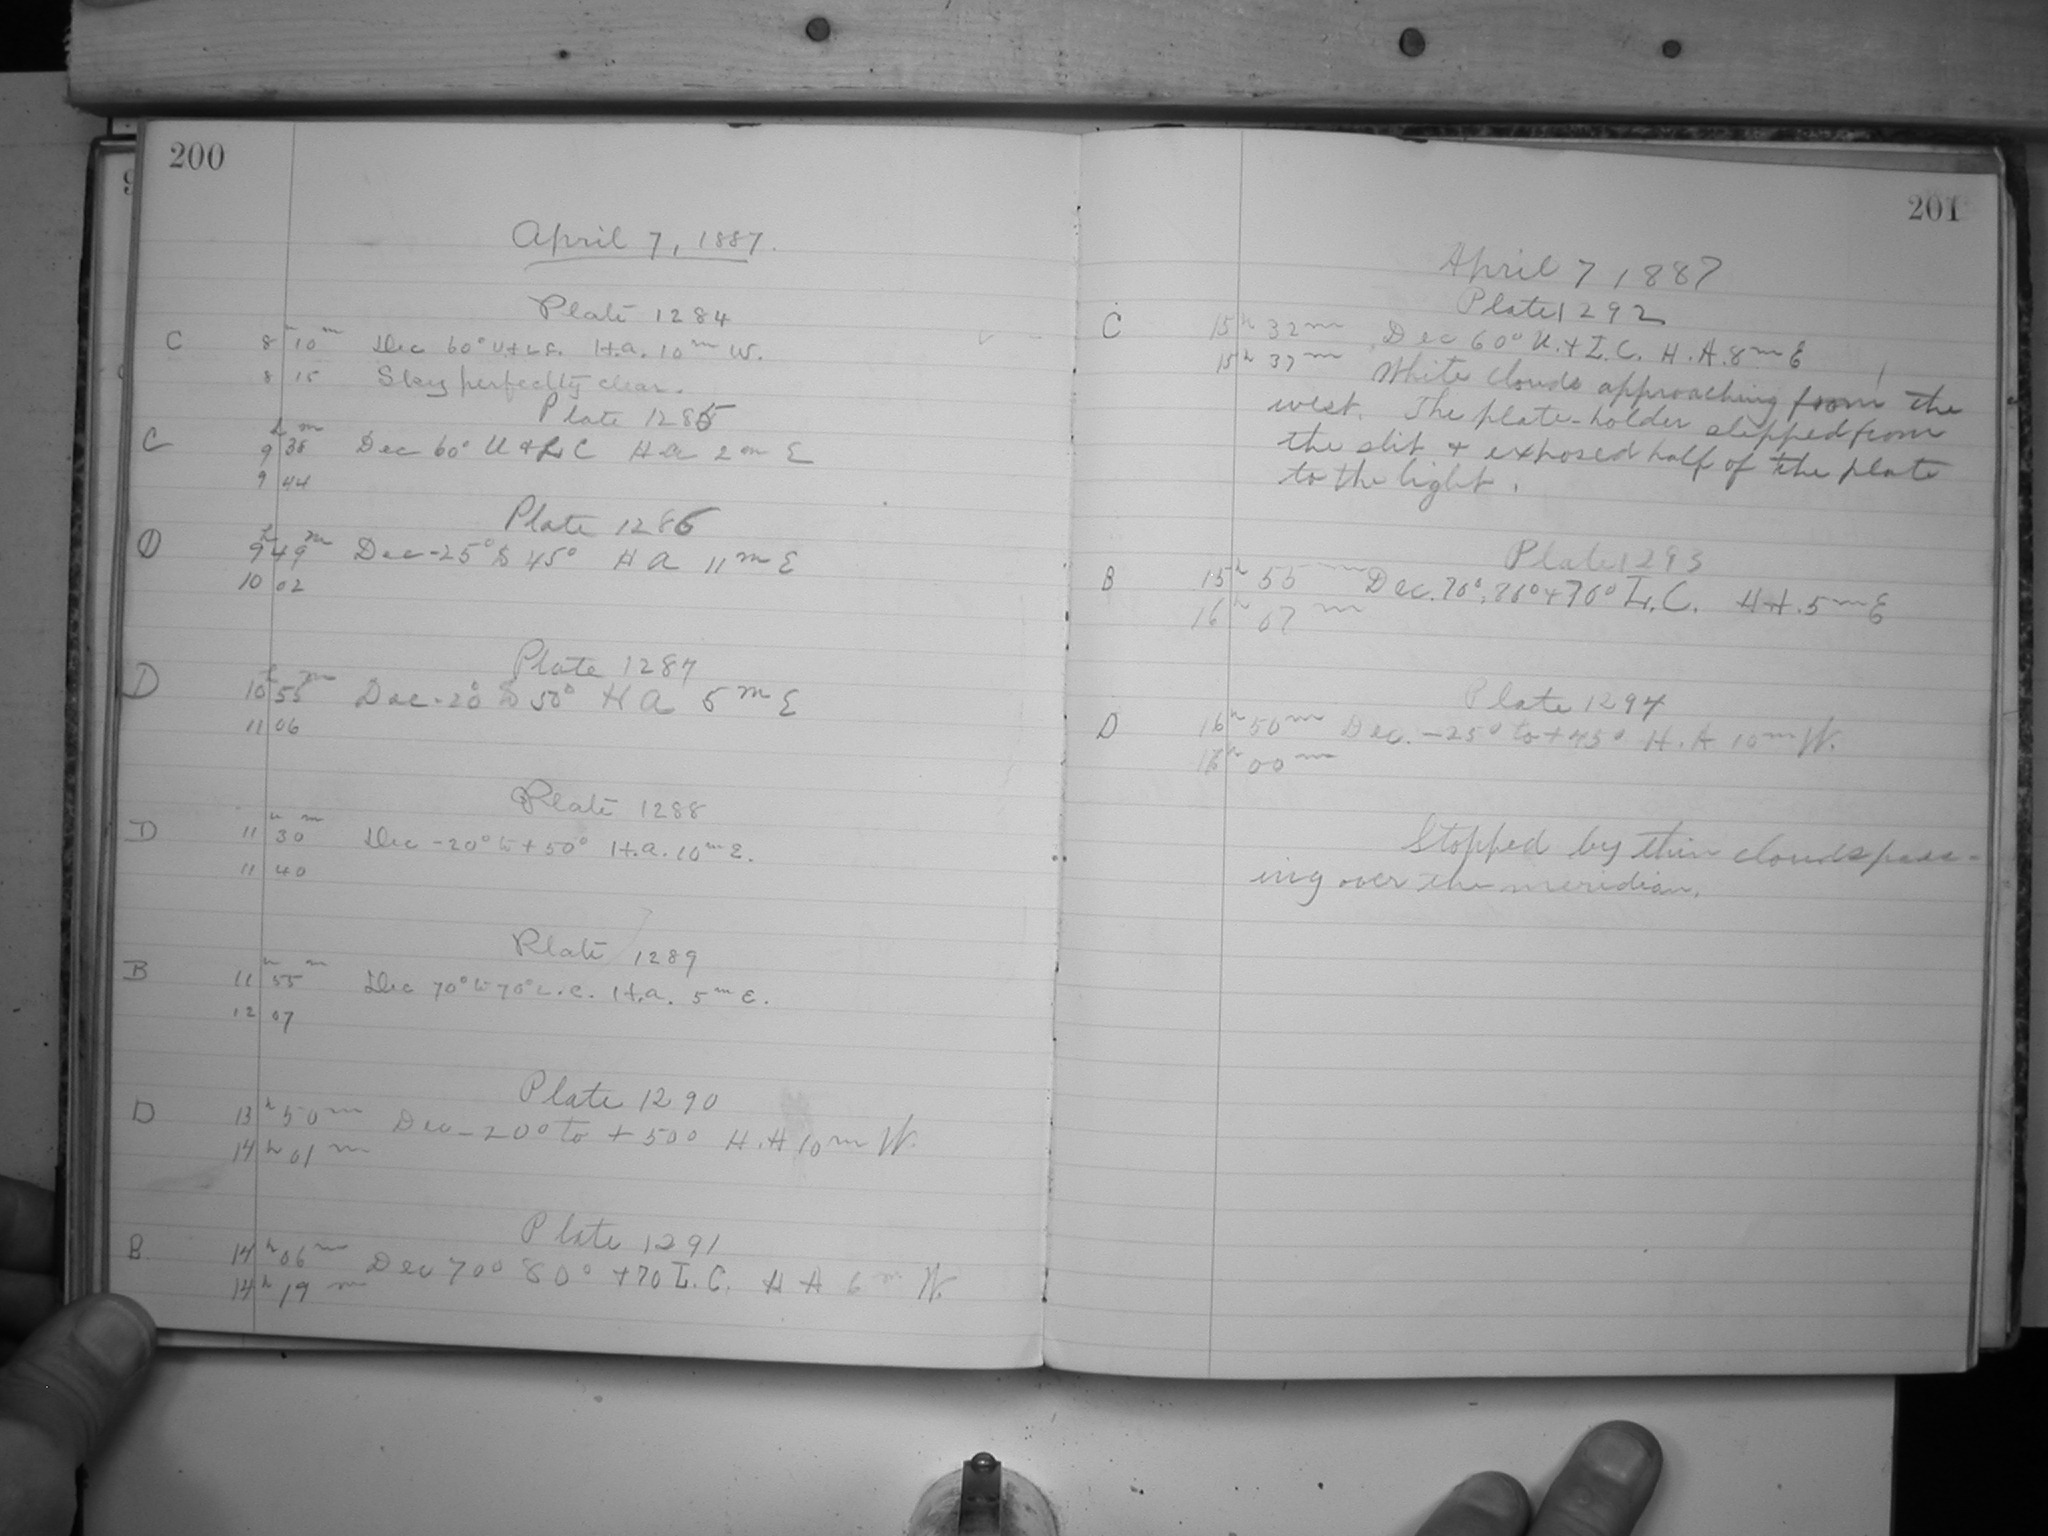 200
April 7, 1887.
Plate 1284
C 8h 10m Dec 60° U.+L.C. H.a. 10m W.
8 15 Sky perfectly clear.
Plate 1285
C 9h 38m Dec 60° U & L C H a 2m E
9 44
Plate 1286
D 9h 49m Dec -25° to 45° H a 11m E
10 02
Plate 1287
D 10h 55m Dec -20 to 50° H a 5m E
11 06
Plate 1288
D 11h 30m Dec -20° to +50° H.a. 10m E.
11 40
Plate 1289
B 11h 55m Dec 70° to 70° L.C. H.a. 5m E.
12 07
Plate 1290
D 13h 50m Dec -20° to +50° H.A 10m W.
14h 01m
Plate 1291
B. 14h 06m Dec 70° 80° +70 L.C. H A 6m W.
14h 19m
201
April 7, 1887
Plate 1292
C 15h 32m Dec 60° U.+L.C. H.A. 8m E
15h 37m White clouds approaching from the
west. The plate-holder slipped from
the slit + exposed half of the plate
to the light.
Plate 1293
B 15h 55m Dec. 70°, 80° + 70° L.C. H.A. 5m E
16h 07m
Plate 1294
D 16h 50m Dec. -25° to +45° H.A 10m W.
00m
Stopped by thin clouds pass-
ing over the meridian.